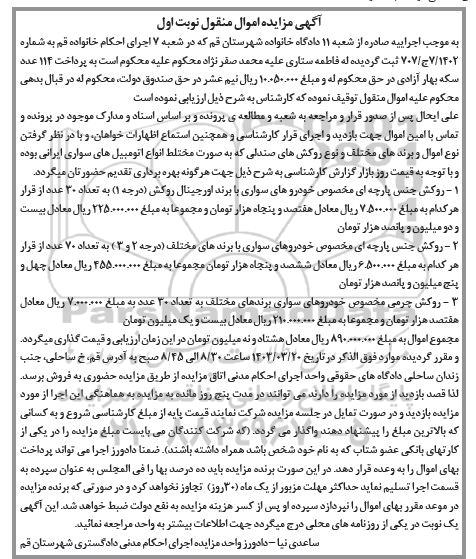 آگهی مزایده اموال منقول نوبت اول
به موجب اجراییه صادره از شعبه ۱۱ دادگاه خانواده شهرستان قم که در شعبه ۷ اجرای احکام خانواده قم به شماره
۷۰۷/ج۷/۱۴۰۲ ثبت گردیده له فاطمه ستاری علیه محمد صفر نژاد محکوم علیه محکوم است به پرداخت ۱۱۴ عدد
سکه بهار آزادی در حق محکوم له و مبلغ ۱۰.۰۵۰.۰۰۰ ریال نیم عشر در حق صندوق دولت، محکوم له در قبال بدهی
محکوم علیه اموال منقول توقیف نموده که کارشناس به شرح ذیل ارزیابی نموده است
علی ایحال پس از صدور قرار و مراجعه به شعبه و مطالعه ی پرونده و بر اساس اسناد و مدارک موجود در پرونده و
تماس با امین اموال جهت بازدید و اجرای قرار کارشناسی و همچنین استماع اظهارات خواهان، و با در نظر گرفتن
نوع اموال و برند های مختلف و نوع روکش های صندلی که به صورت مختلط انواع اتومبیل های سواری ایرانی بوده
و با توجه به قیمت روز بازار گزارش کارشناسی به شرح ذیل جهت هرگونه بهره برداری تقدیم حضورتان میگردد.
۱ – روکش جنس پارچه ای مخصوص خودرو های سواری با برند اورجینال روکش (درجه ۱) به تعداد ۳۰ عدد از قرار
هر کدام به مبلغ ۷.۵۰۰.۰۰۰ ریال معادل هفتصد و پنجاه هزار تومان و مجموعا به مبلغ ۲۲۵.۰۰۰.۰۰۰ ریال معادل بیست
و دو میلیون و پانصد هزار تومان
۲ – روکش جنس پارچه ای مخصوص خودروهای سواری با برند های مختلف (درجه ۲ و ۳) به تعداد ۷۰ عدد از قرار
هر کدام به مبلغ ۶.۵۰۰.۰۰۰ ریال معادل ششصد و پنجاه هزار تومان مجموعا به مبلغ ۴۵۵.۰۰۰.۰۰۰ ریال معادل چهل و
پنج میلیون و پانصد هزار تومان
۳ – روکش چرمی مخصوص خودروهای سواری برندهای مختلف به تعداد ۳۰ عدد به مبلغ ۷.۰۰۰.۰۰۰ ریال معادل
هفتصد هزار تومان و مجموعا به مبلغ ۲۱۰.۰۰۰.۰۰۰ ریال معادل بیست و یک میلیون تومان
مجموع اموال به مبلغ ۸۹۰.۰۰۰.۰۰۰ ریال معادل هشتاد و نه میلیون تومان در این زمان ارزیابی و قیمت گذاری میگردد.
و مقرر گردیده موارد فوق الذکر در تاریخ ۱۴۰۳/۰۳/۲۰ ساعت ۸/۳۰ الی ۸/۴۵ صبح به آدرس قم، خ ساحلی، جنب
زندان ساحلی دادگاه های حقوقی واحد اجرای احکام مدنی اتاق مزایده از طریق مزایده حضوری به فروش برسد.
لذا قصد بازدید از مورد مزایده را دارند می توانند در مدت پنج روز مانده به مزایده به هماهنگی این اجرا از مورد
مزایده بازدید و در صورت تمایل در جلسه مزایده شرکت نمایند قیمت پایه از مبلغ کارشناسی شروع و به کسانی
که بالاترین مبلغ را پیشنهاد دهند واگذار می گردد. (که شرکت کنندگان می بایست مبلغ مزایده را در یکی از
کارتهای بانکی عضو شتاب که به نام خود شخص باشد همراه داشته باشند). ضمنا دادورز اجرا می تواند پرداخت
بهای اموال را به وعده قرار دهد. در این صورت برنده مزایده باید ده درصد بها را فی المجلس به عنوان سپرده به
قسمت اجرا تسلیم نماید حداکثر مهلت مزبور از یک ماه (۳۰روز) تجاوز نخواهد کرد و در صورتی که برنده مزایده
در موعد مقرر بهای اموال را نپردازد سپرده او پس از کسر هزینه مزایده به نفع دولت ضبط خواهد شد. این آگهی
یک نوبت در یکی از روزنامه های محلی درج میگردد جهت اطلاعات بیشتر به واحد مراجعه نمائید.
ساعدی نیا – دادورز واحد مزایده اجرای احکام مدنی دادگستری شهرستان قم